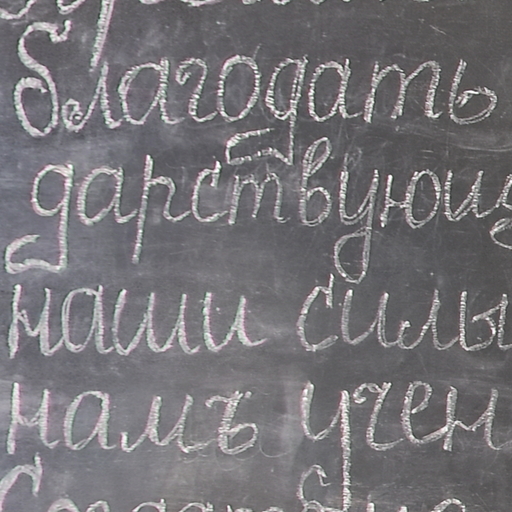 благодать
дарствующ
наши силы
намъ учен